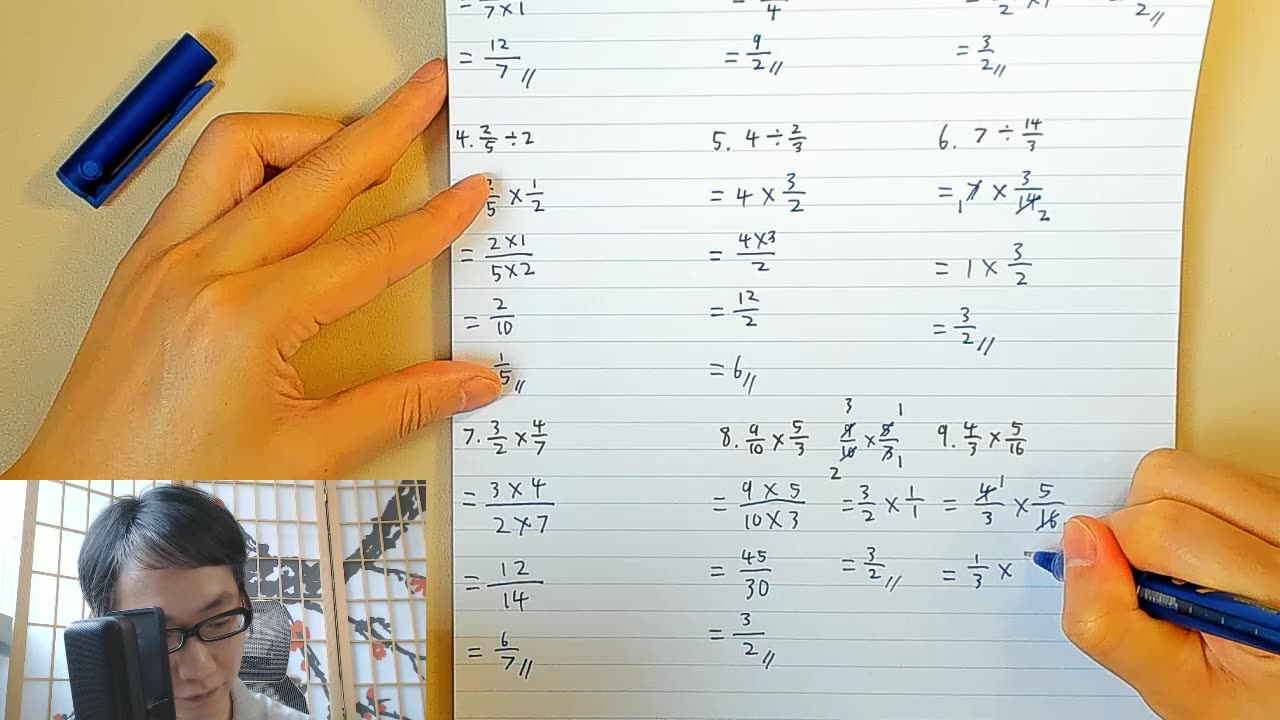 = 12/7 //
= 9/2 //
= 3/2 //
4. 2/5 ÷ 2
2/5 × 1/2
= 2×1/5×2
= 2/10
1/5 //
5. 4 ÷ 2/3
= 4 × 3/2
= 4×3/2
= 12/2
= 6 //
6. 7 ÷ 14/3
= 7 1 × 3/14 2
= 1 × 3/2
= 3/2 //
7. 3/2 × 4/7
= 3 × 4/2 × 7
= 12/14
= 6/7 //
8. 9/10 × 5/3
= 9 × 5/10 × 3
= 45/30
= 3/2 //
3 1
9/10 × 5/3
2 1
= 3/2 × 1/1
= 3/2 //
9. 4/3 × 5/16
= 4 1/3 × 5/16
= 1/3 ×